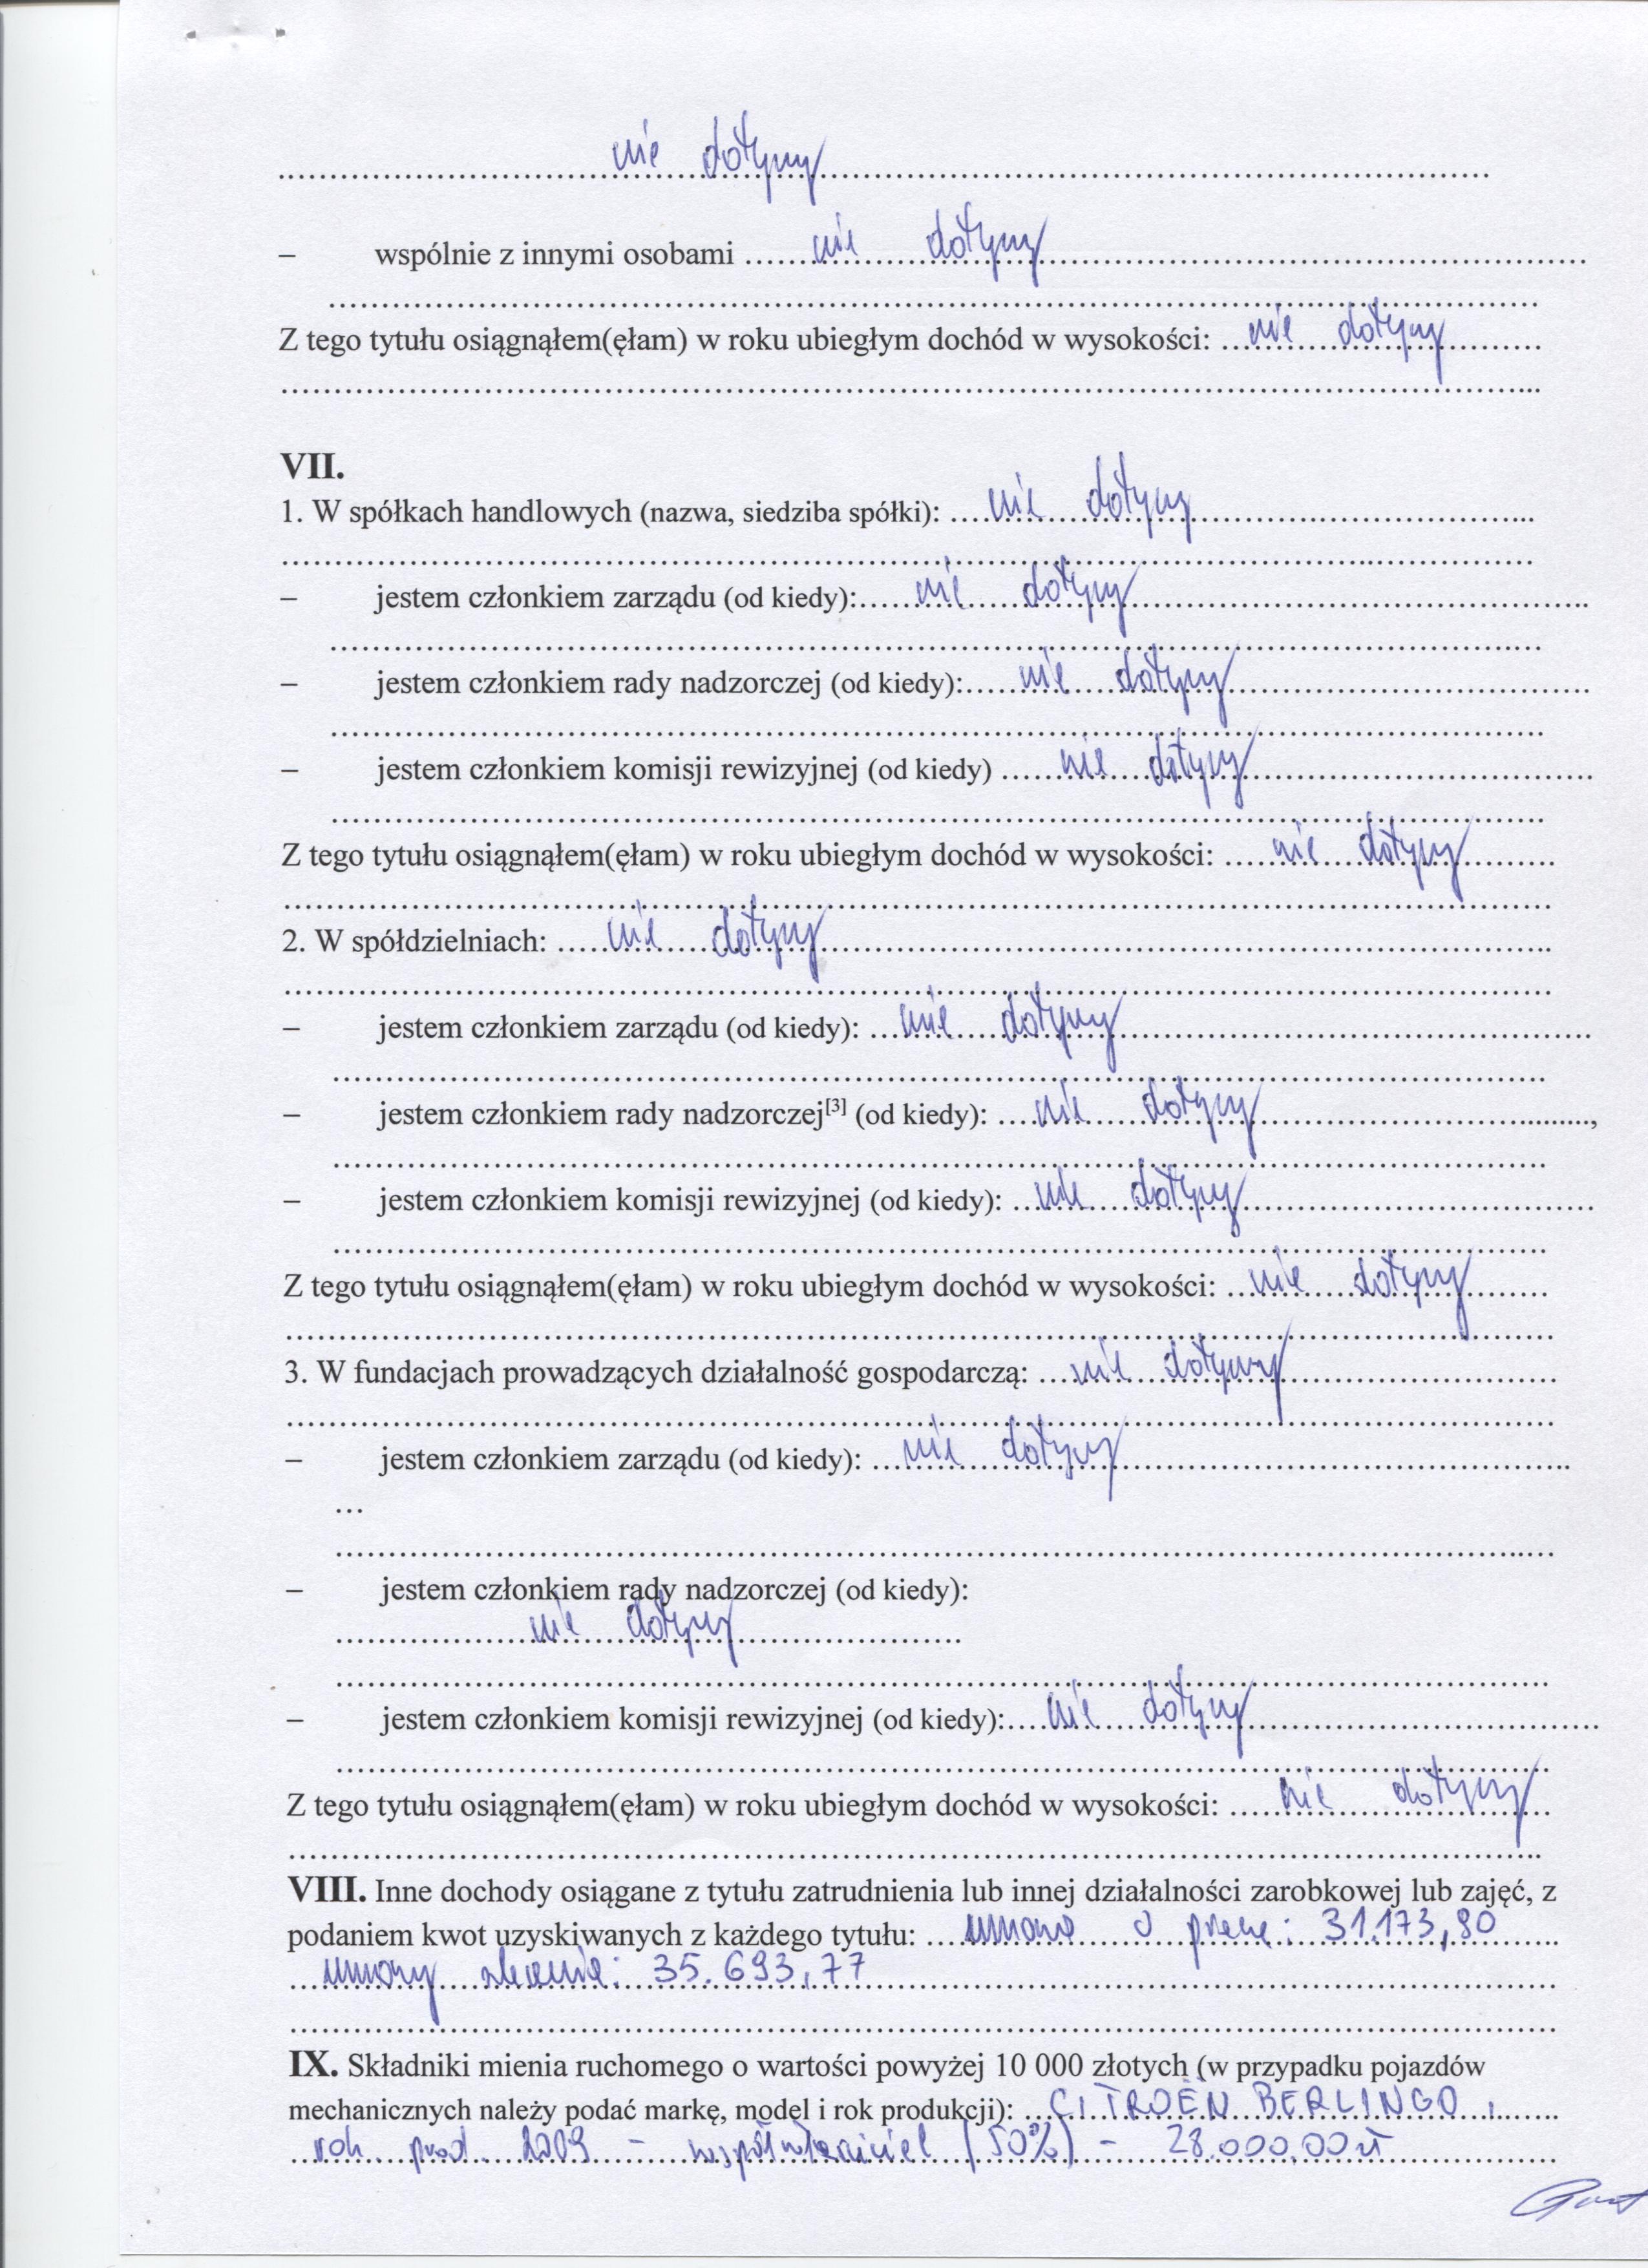 nie dotyczy
– wspólnie z innymi osobami ..... nie dotyczy .....
Z tego tytułu osiągnąłem(ęłam) w roku ubiegłym dochód w wysokości: ..... nie dotyczy .....
VII.
1. W spółkach handlowych (nazwa, siedziba spółki): ..... nie dotyczy .....
– jestem członkiem zarządu (od kiedy):..... nie dotyczy .....
– jestem członkiem rady nadzorczej (od kiedy):..... nie dotyczy .....
– jestem członkiem komisji rewizyjnej (od kiedy) ..... nie dotyczy .....
Z tego tytułu osiągnąłem(ęłam) w roku ubiegłym dochód w wysokości: ..... nie dotyczy .....
2. W spółdzielniach: ..... nie dotyczy .....
– jestem członkiem zarządu (od kiedy): ..... nie dotyczy .....
– jestem członkiem rady nadzorczej[3] (od kiedy): ..... nie dotyczy .....,
– jestem członkiem komisji rewizyjnej (od kiedy): ..... nie dotyczy .....
Z tego tytułu osiągnąłem(ęłam) w roku ubiegłym dochód w wysokości: ..... nie dotyczy .....
3. W fundacjach prowadzących działalność gospodarczą: ..... nie dotyczy .....
– jestem członkiem zarządu (od kiedy): ..... nie dotyczy .....
...
– jestem członkiem rady nadzorczej (od kiedy):
..... nie dotyczy .....
– jestem członkiem komisji rewizyjnej (od kiedy):..... nie dotyczy .....
Z tego tytułu osiągnąłem(ęłam) w roku ubiegłym dochód w wysokości: ..... nie dotyczy .....
VIII. Inne dochody osiągane z tytułu zatrudnienia lub innej działalności zarobkowej lub zajęć, z
podaniem kwot uzyskiwanych z każdego tytułu: ..... umowa o pracę: 31.173,80
umowy zlecenia: 35.693,77
IX. Składniki mienia ruchomego o wartości powyżej 10 000 złotych (w przypadku pojazdów
mechanicznych należy podać markę, model i rok produkcji): ... CITROËN BERLINGO,
rok prod. 2009 – współwłaściciel (50%) – 28.000,00 zł